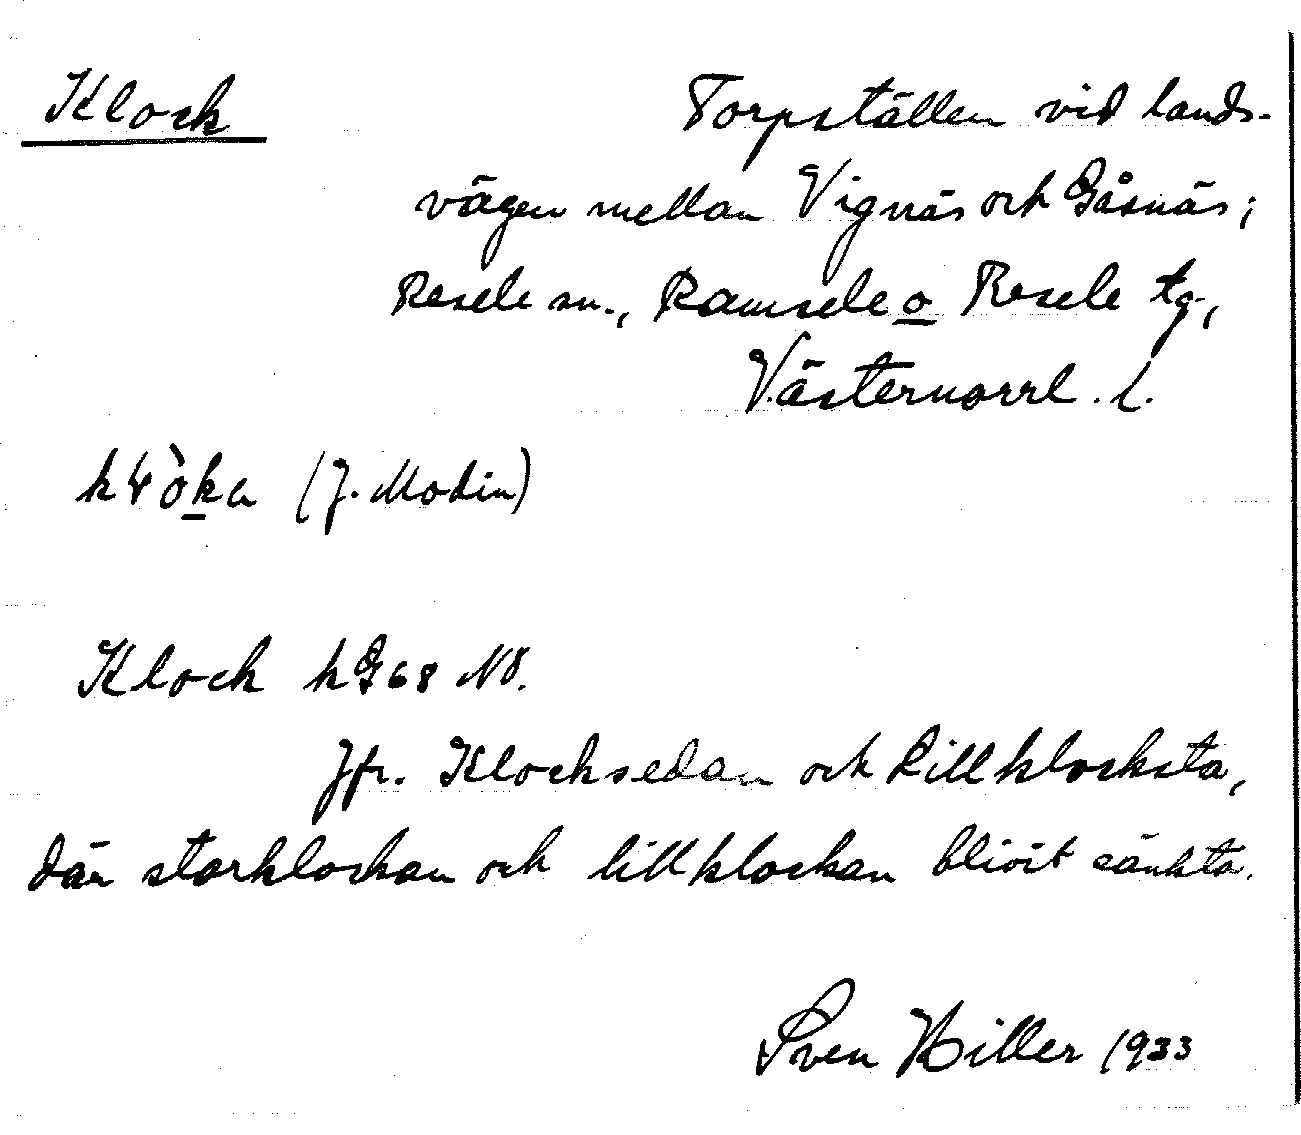 Klock
Torpställen vid lands-
vägen mellan Vignäs och Gåsnäs;
Resele sn., Ramsele o Resele tg,
Västernorrl. l.
(J. Modin)
Klock hG68 NV.
Jfr. Klocksedan och Lillklocksta,
där storklockan och lillklockan blivit sänkta.
Sven Hiller 1933